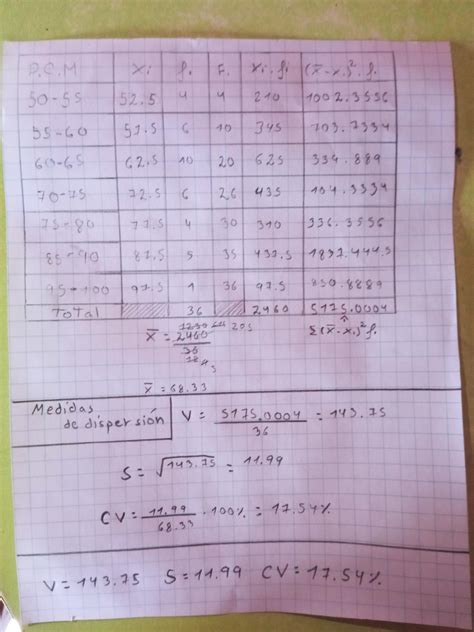 P.C.M Xi fi F. Xi.fi (x̄-xi)².fi
50-55 52.5 4 4 210 1002.3556
55-60 57.5 6 10 345 703.7334
60-65 62.5 10 20 625 339.889
70-75 72.5 6 26 435 104.3334
75-80 77.5 4 30 310 336.3556
85-90 87.5 5 35 437.5 1837.4445
95-100 97.5 1 36 97.5 850.8889
Total 36 2460 5175.0004
x̄ = 2460 Σ(x̄-xi)².fi
36
x̄ = 68.33
Medidas
de dispersión
V = 5175.0004 = 143.75
36
S = √143.75 = 11.99
CV = 11.99 . 100% = 17.54%
68.33
V = 143.75 S = 11.99 CV = 17.54%